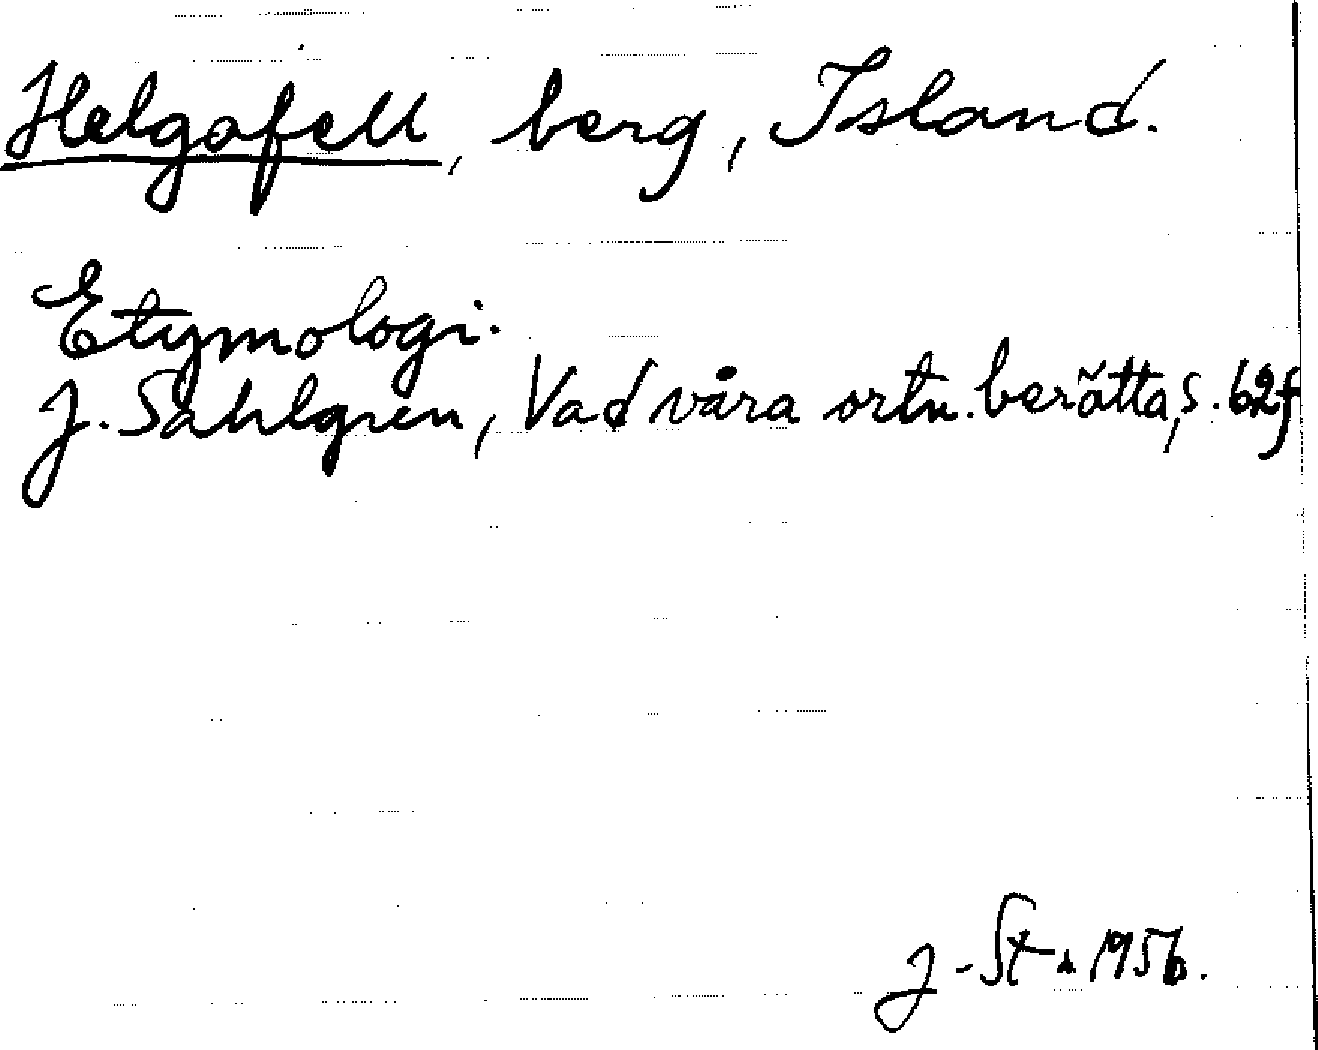 Helgafell, berg, Island.
Etymologi.
J. Sahlgren, Vad våra ortn. berätta, s. 62f
J-St 1956.